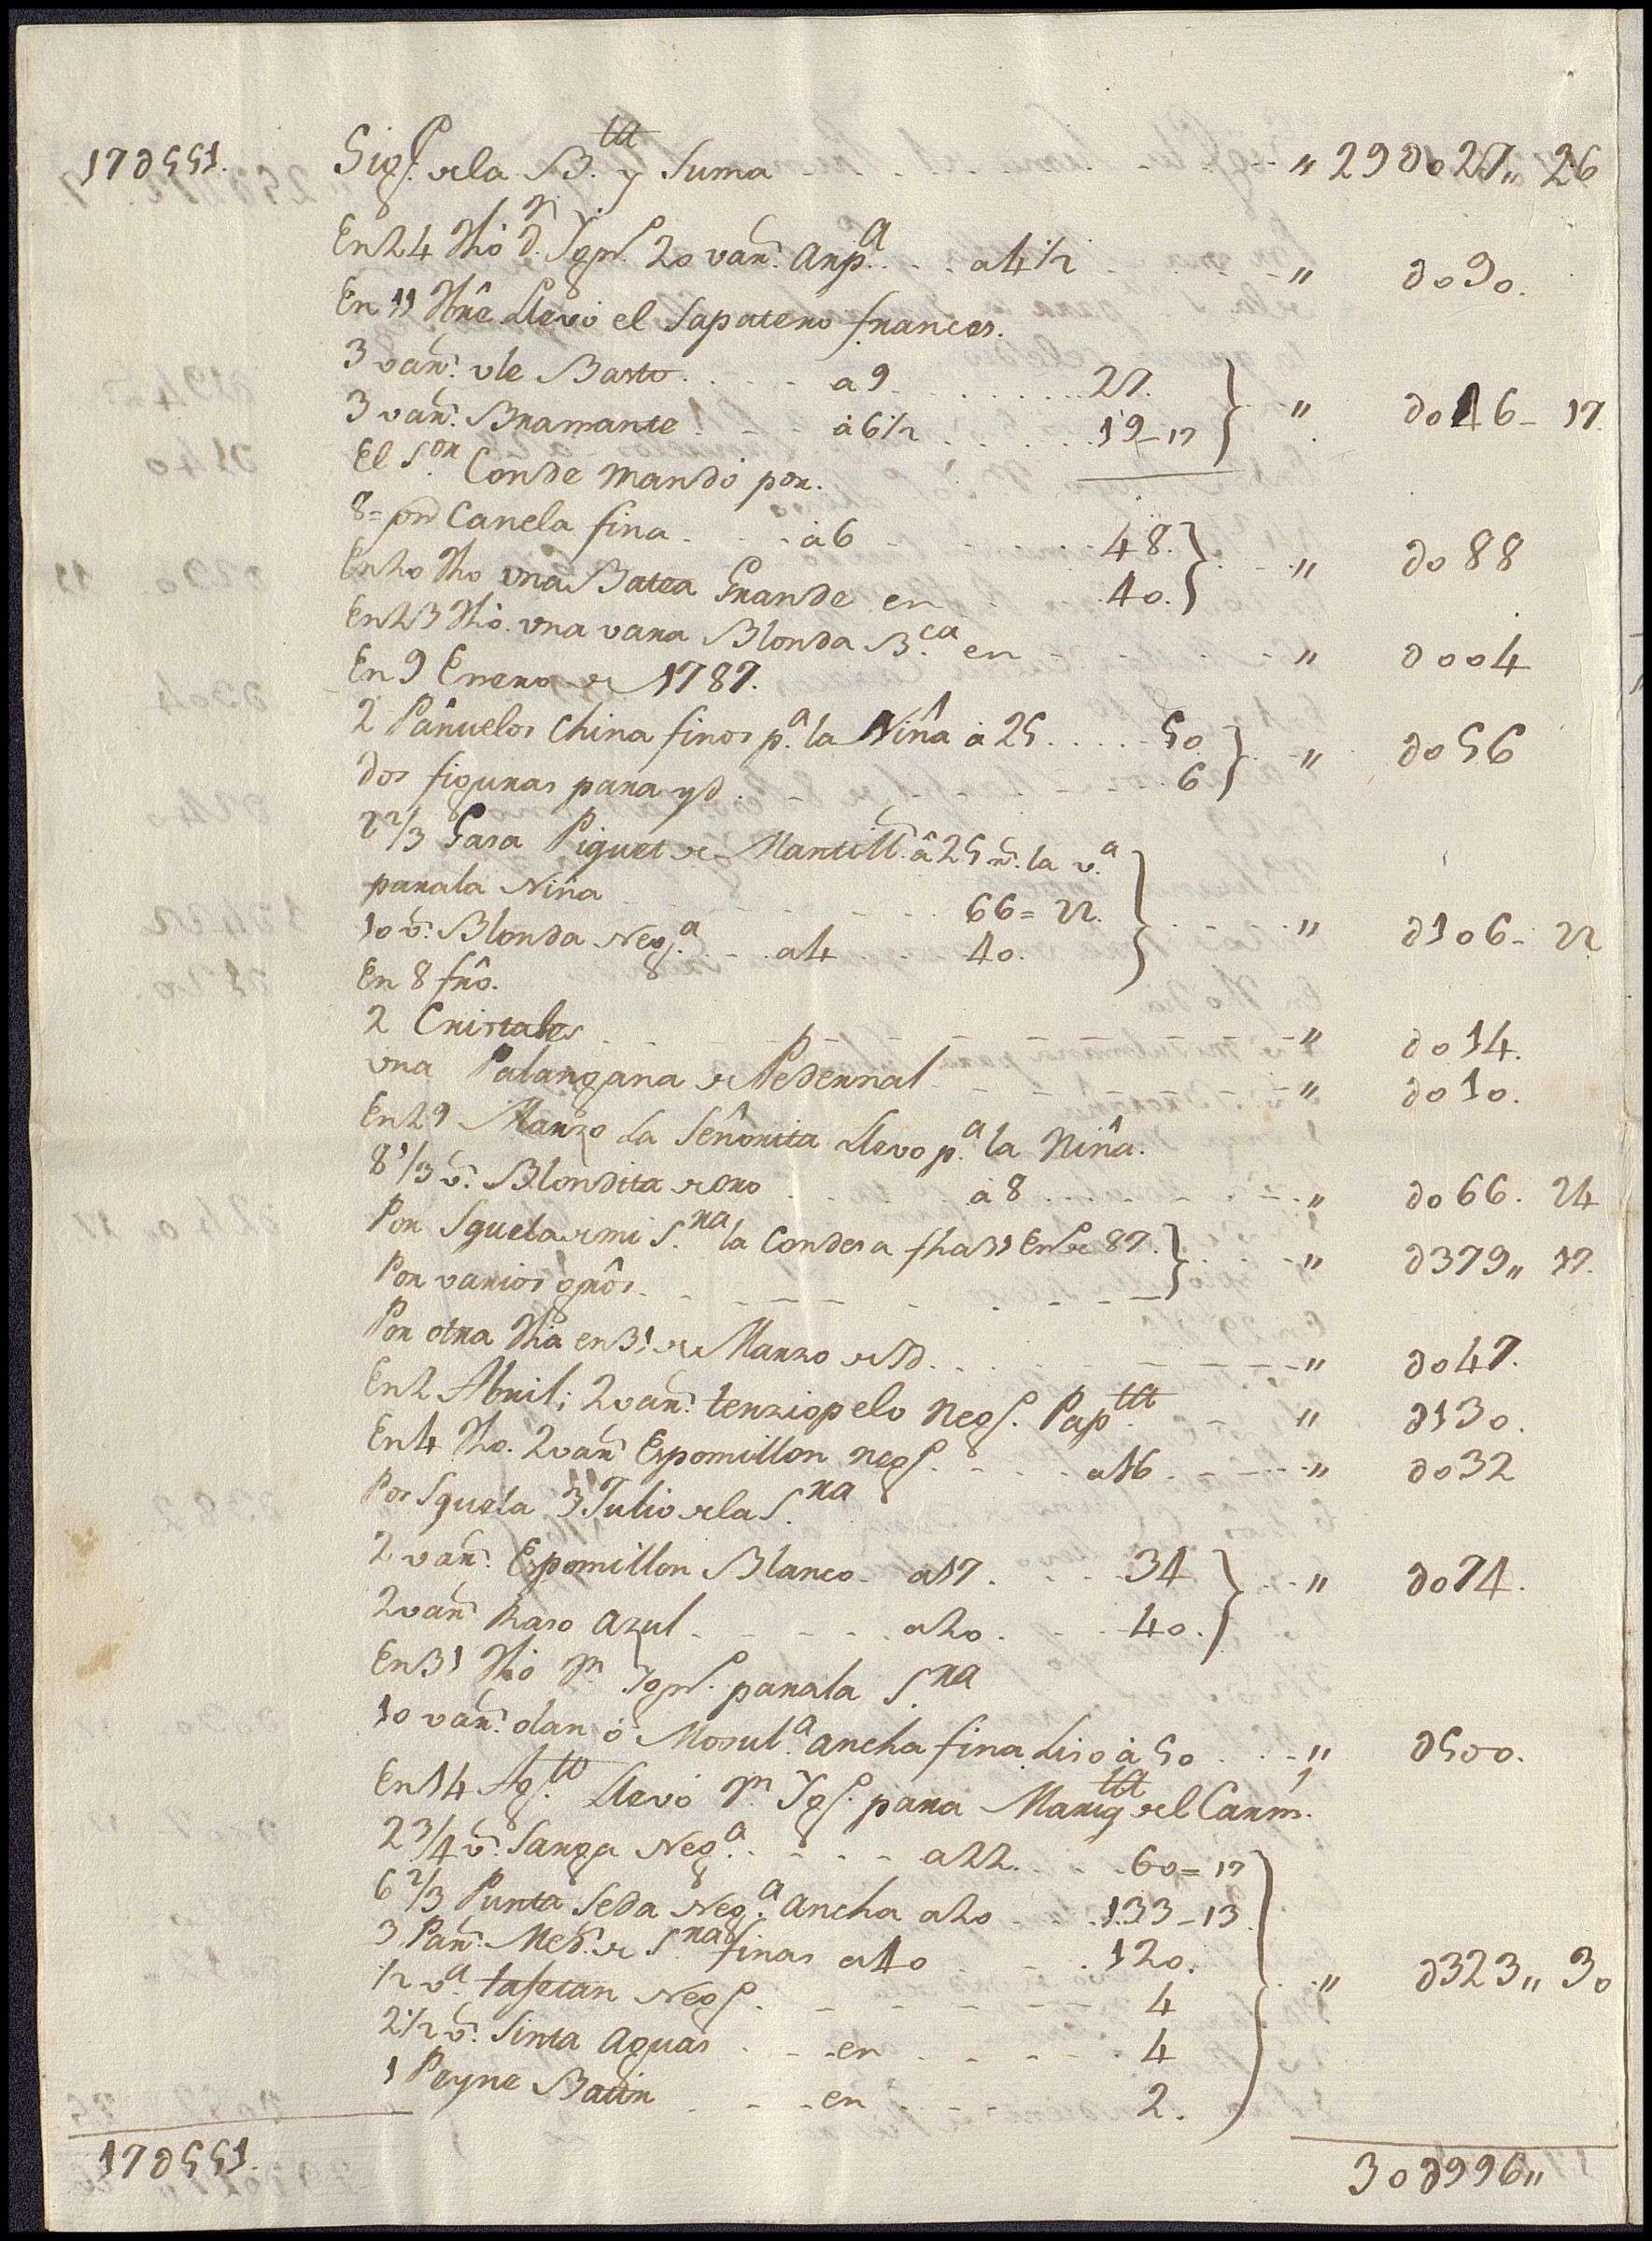 17∂551. Sigᵉ. de la B.ᵗᵃ y Suma " 29∂027,, 26
En 24 dho d.ⁿ Ygn.º 20 var.ˢ Anp.ᵃ a 4½ " ∂090.
En 11 Llevó el Sapatero frances.
3 var.ˢ de Basto a 9 27.
3 var.ˢ Bramante á 6½ 19-17 " ∂046-17.
El S.ᵒʳ Conde mandó por.
8= Canela fina á 6 48.
En 20 dho una Batea Grande en 40. " ∂088
En 23 dho. una vara Blonda B.ᶜᵃ en " ∂004
En 9 Enero de 1787.
2 Pañuelos China finos p.ᵃ la Niña á 25 50.
dos figuras para yd. 6 " ∂056
2⅔ Gasa Piquet de Mantill.ˢ â 25 r.ˢ la v.ᵃ
para la Niña 66=22.
10 v.ˢ Blonda Neg.ᵃ a 4 40. " ∂106-22
En 8 frô.
2 Cristales " ∂014.
una Palangana de Pedernal " ∂010.
En 29 Marzo La Señorita Llevo p.ᵃ la Niña.
8⅓ v.ˢ Blondita de oro á 8 " ∂066. 24
Por Squela de mi S.ʳᵃ la Condesa fha 11 Enº de 87.
Por varios gnôs. " ∂379,, 17.
Por otra dha en 31 de Marzo de Yd. " ∂047.
En 2 Abril; 2 var.ˢ terziopelo Negº. Pap.ᵗᵃ " ∂130.
En 4 dho. 2 var.ˢ Espomillon negº. a 16 " ∂032
Por Squela 3 Julio de la S.ʳᵃ
2 var.ˢ Espomillon Blanco a 17. 34
2 var.ˢ Raso Azul a 20. 40. " ∂074.
En 31 dho D.ⁿ Ygn.º para la S.ʳᵃ
10 var.ˢ olan ó Mosul.ᵃ ancha fina Liso à 50 " ∂500.
En 14 Ag.ᵗᵒ Llevó D.ⁿ Ygº. para Mariq.ᵗᵃ del Carm.
2¾ v.ˢ Sarga Neg.ᵃ a 22. 60=17
6⅔ Punta Seda Neg.ᵃ Ancha a 20 133-13.
3 Pañ.ˢ Med.ˢ de S.ʳᵃˢ finas a 40 120.
½ v.ᵃ tafetan Negº. 4
2½ v.ˢ Sinta Aguas en 4
1 Peyne Batin en 2. " ∂323,, 30
17∂551. 30∂996,,